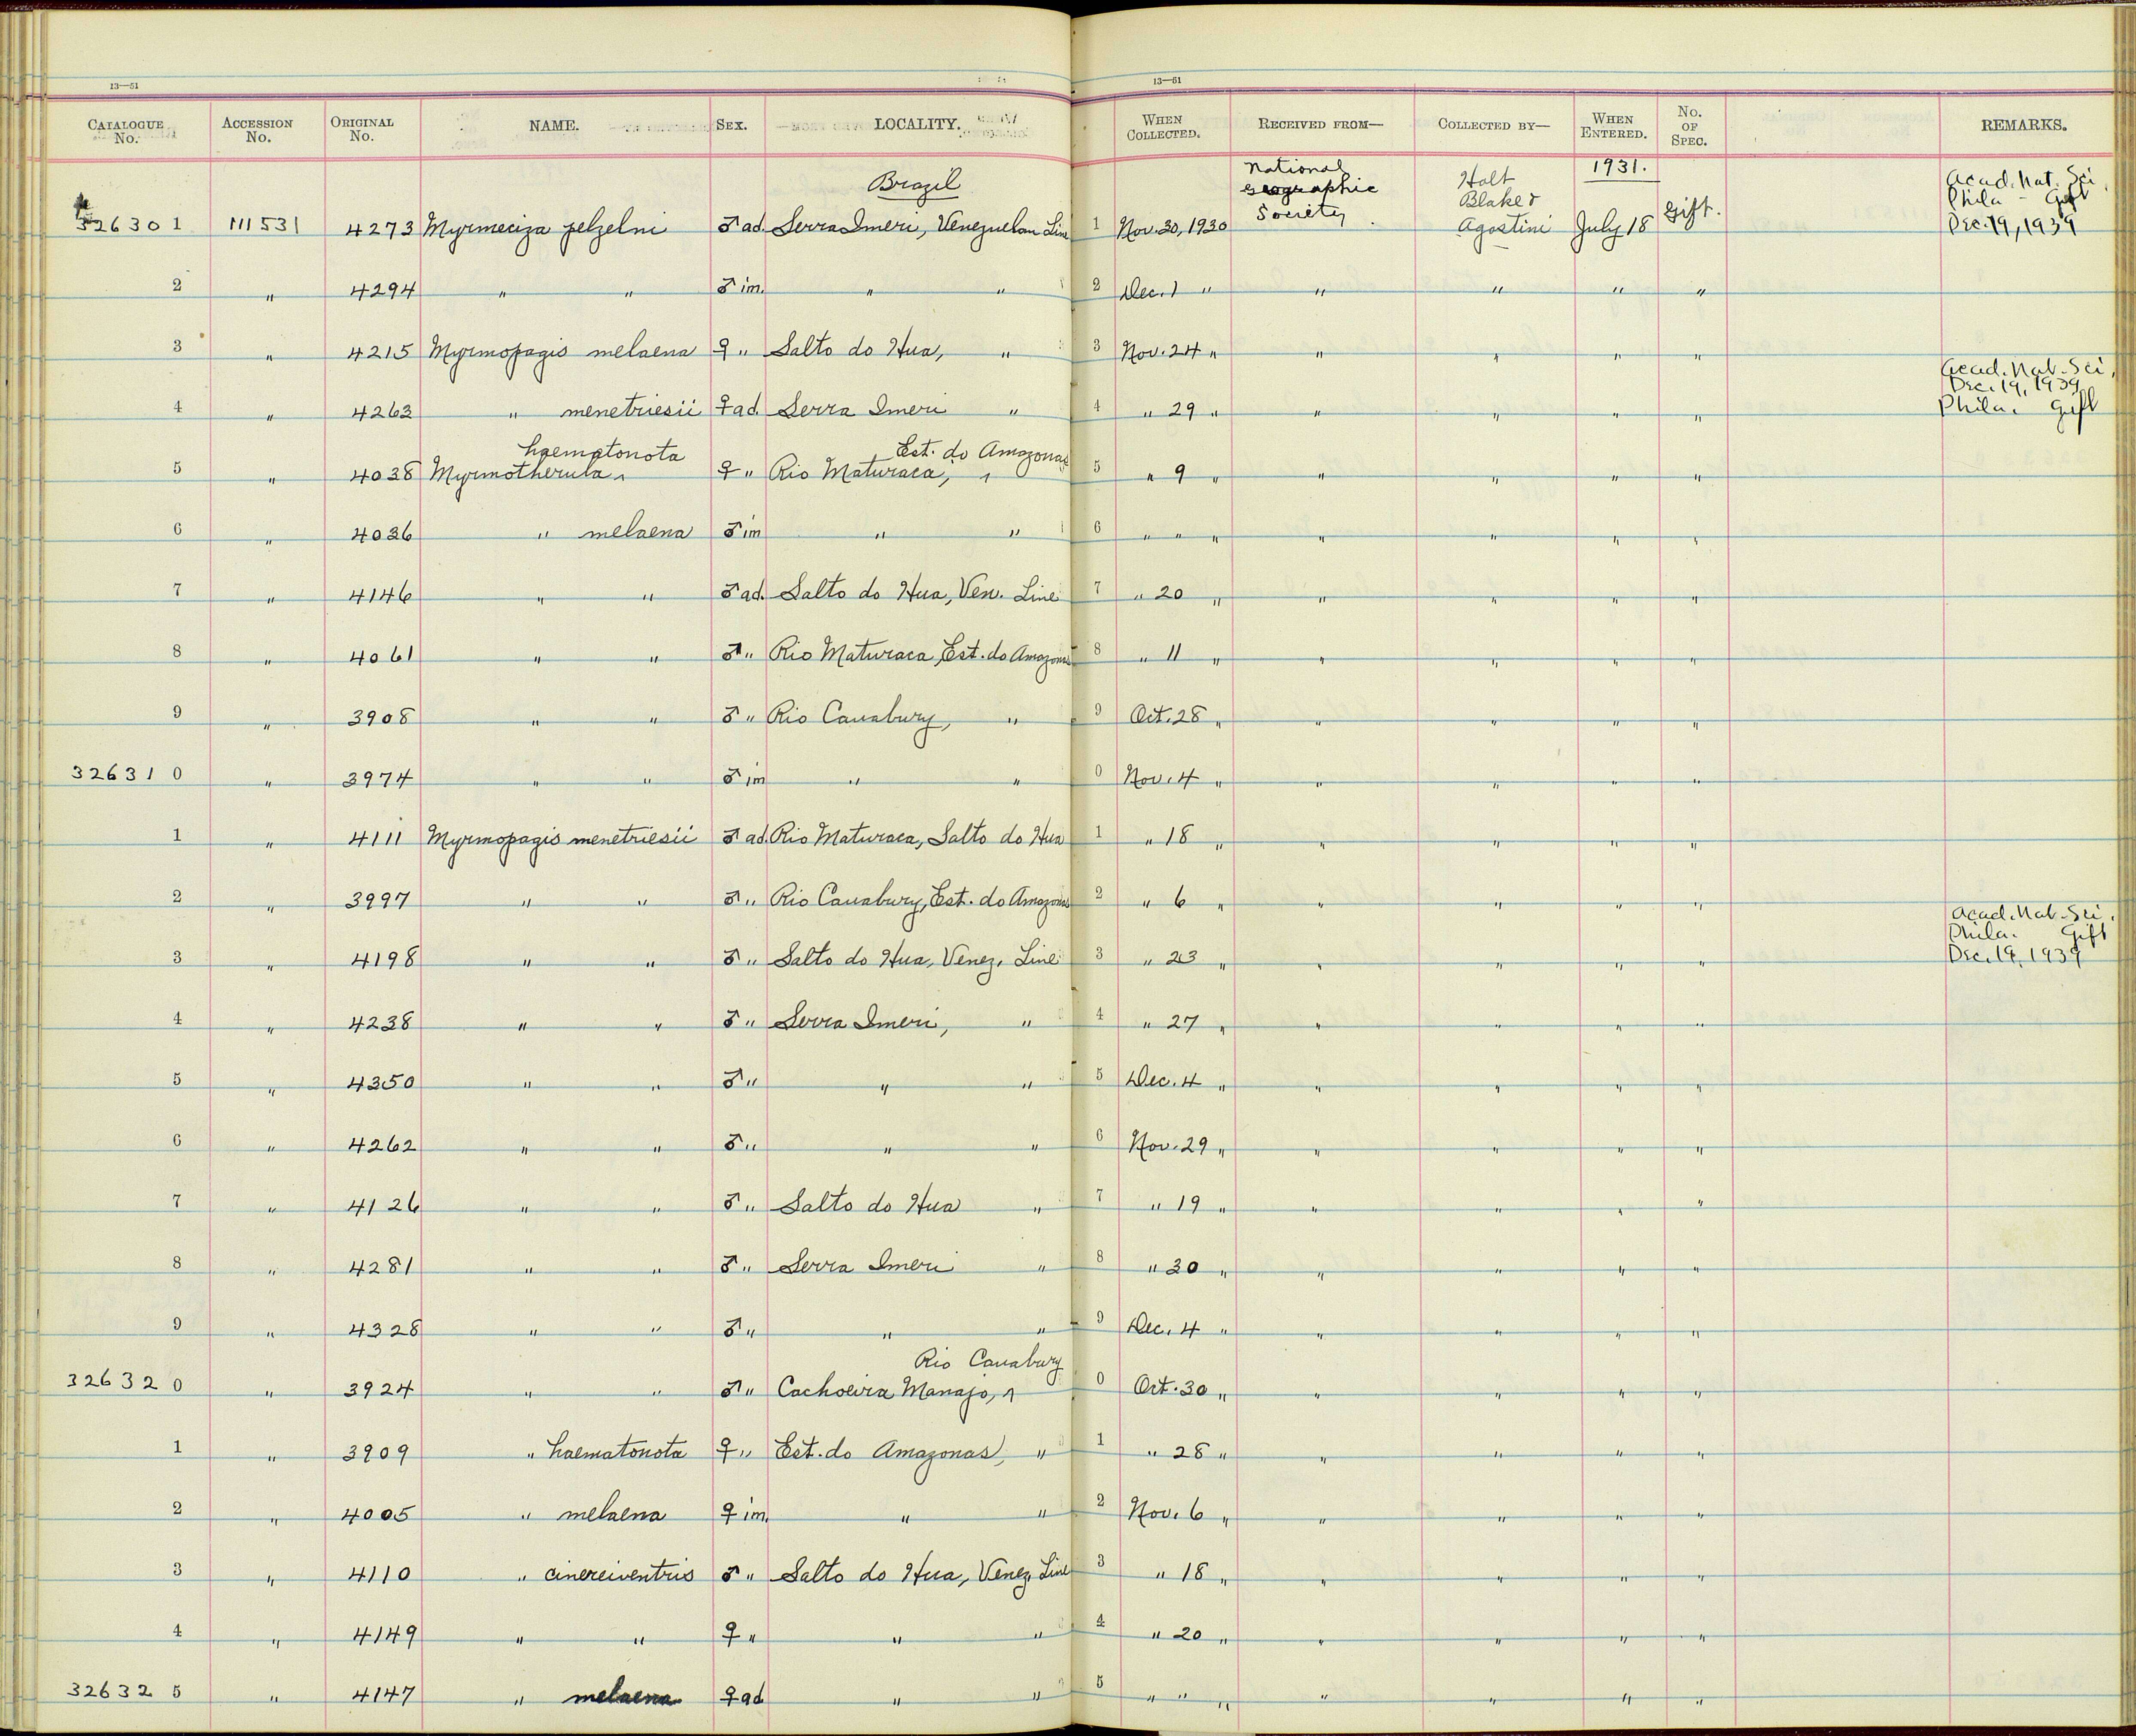 13—51
13—51
CATALOGUE No. ACCESSION No. ORIGINAL No. NAME. SEX. LOCALITY. WHEN COLLECTED. RECEIVED FROM— COLLECTED BY— WHEN ENTERED. No. OF SPEC. REMARKS.
Brazil National Geographic Society Holt Blake & Agostini 1931. Acad. Nat. Sci. Phila - Gift Dec. 19, 1939
326301 111531 4273 Myrmeciza pelzelni ♂ ad. Serra Imeri, Venezuelan Line 1 Nov. 30, 1930 July 18 Gift.
2 " 4294 " " ♂ im. " " 2 Dec. 1 " " " " "
3 " 4215 Myrmopagis melaena ♀ " Salto do Hua, " 3 Nov. 24 " " " " "
4 " 4263 " menetriesii ♀ ad. Serra Imeri " 4 " 29 " " " " " Acad. Nat. Sci, Dec. 19, 1939 Phila. Gift
haematonota Est. do Amazonas
5 " 4038 Myrmotherula ^ ♀ " Rio Maturaca, ^ 5 " 9 " " " " "
6 " 4036 " melaena ♂ im " " 6 " " " " " " "
7 " 4146 " " ♂ ad. Salto do Hua, Ven. Line 7 " 20 " " " " "
8 " 4061 " " ♂ " Rio Maturaca, Est. do Amazonas 8 " 11 " " " " "
9 " 3908 " " ♂ " Rio Cauabury, " 9 Oct. 28 " " " " "
326310 " 3974 " " ♂ im " " 0 Nov. 4 " " " " "
1 " 4111 Myrmopagis menetriesii ♂ ad. Rio Maturaca, Salto do Hua 1 " 18 " " " " "
2 " 3997 " " ♂ " Rio Cauabury, Est. do Amazonas 2 " 6 " " " " "
3 " 4198 " " ♂ " Salto do Hua, Venez. Line 3 " 23 " " " " " Acad. Nat. Sci. Phila. Gift Dec. 19, 1939
4 " 4238 " " ♂ " Serra Imeri, " 4 " 27 " " " " "
5 " 4350 " " ♂ " " " 5 Dec. 4 " " " " "
6 " 4262 " " ♂ " " " 6 Nov. 29 " " " " "
7 " 4126 " " ♂ " Salto do Hua " 7 " 19 " " " " "
8 " 4281 " " ♂ " Serra Imeri " 8 " 30 " " " " "
9 " 4328 " " ♂ " " " 9 Dec. 4 " " " " "
Rio Cauabury
326320 " 3924 " " ♂ " Cachoeira Manajo, ^ 0 Oct. 30 " " " " "
1 " 3909 " haematonota ♀ " Est. do Amazonas, " 1 " 28 " " " " "
2 " 4005 " melaena ♀ im. " " 2 Nov. 6 " " " " "
3 " 4110 " cinereiventris ♂ " Salto do Hua, Venez. Line 3 " 18 " " " " "
4 " 4149 " " ♀ " " " 4 " 20 " " " " "
326325 " 4147 " melaena ♀ ad " " 5 " " " " " " "